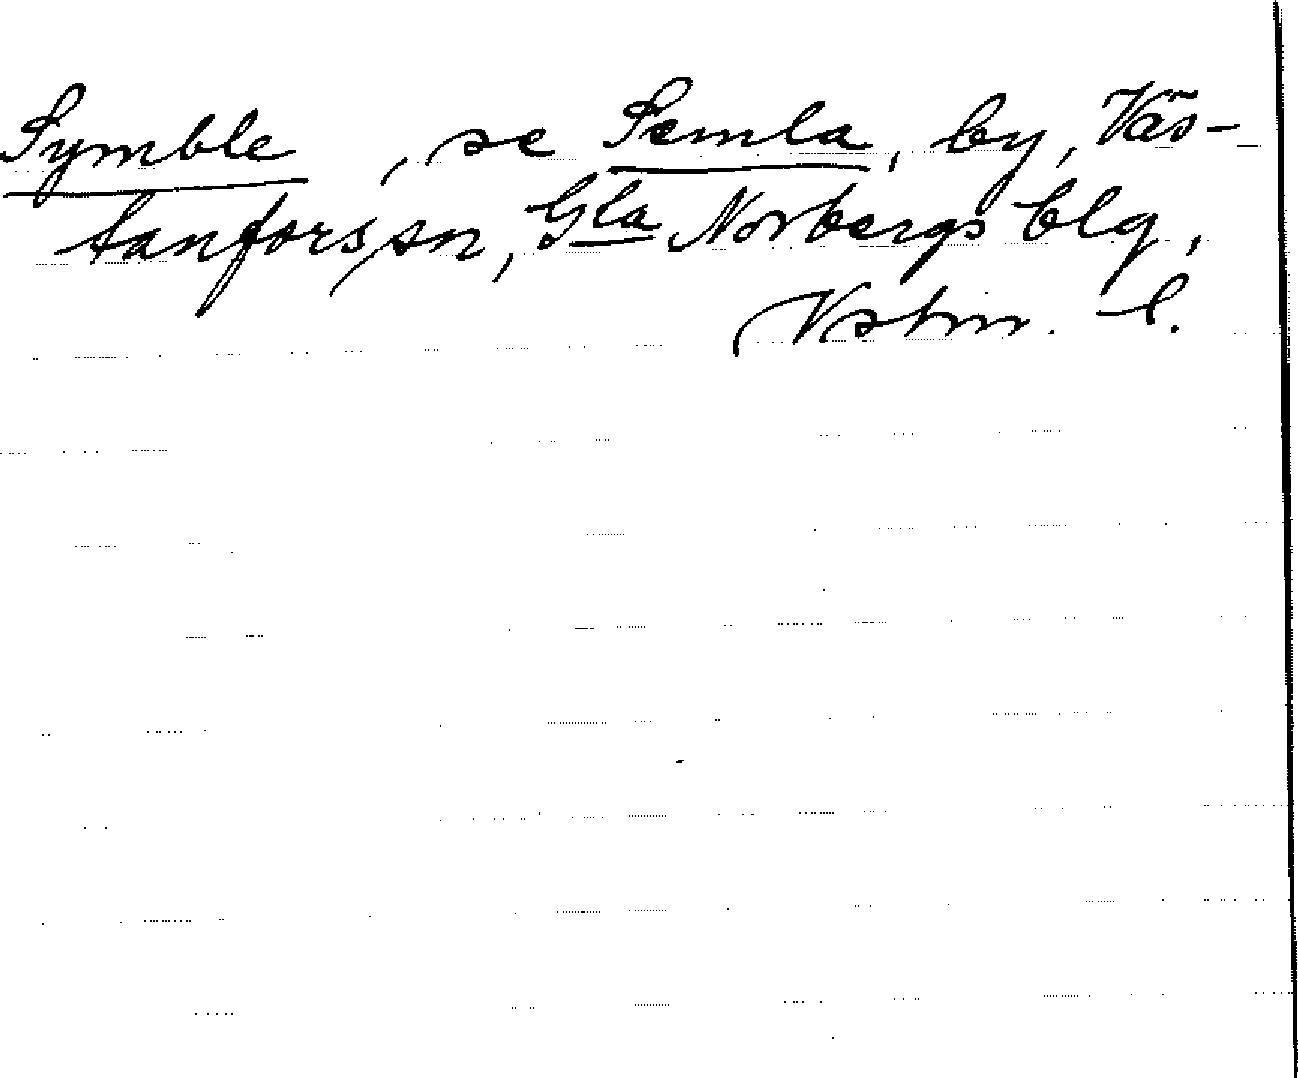 Symble, se Semla, by, Väs-
tanfors sn, Gla Norbergs blg,
Vstm. l.